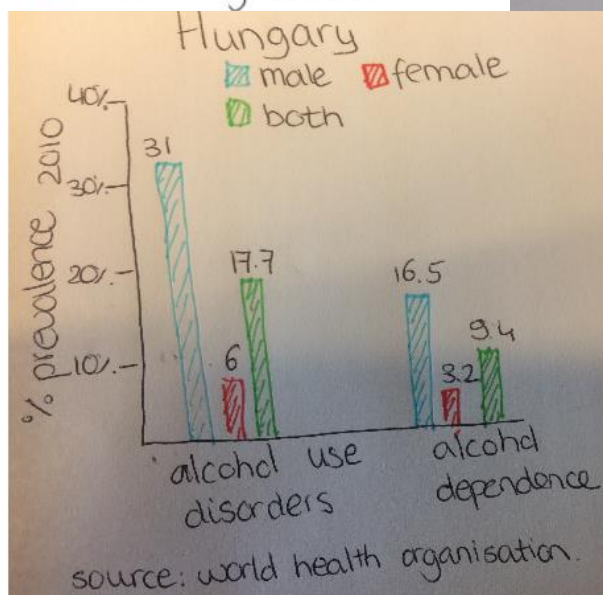 Hungary
male female
both
% prevalence 2010
40%
30%
20%
10%
31
6
17.7
16.5
3.2
9.4
alcohol use
disorders
alcohol
dependence
source: world health organisation.